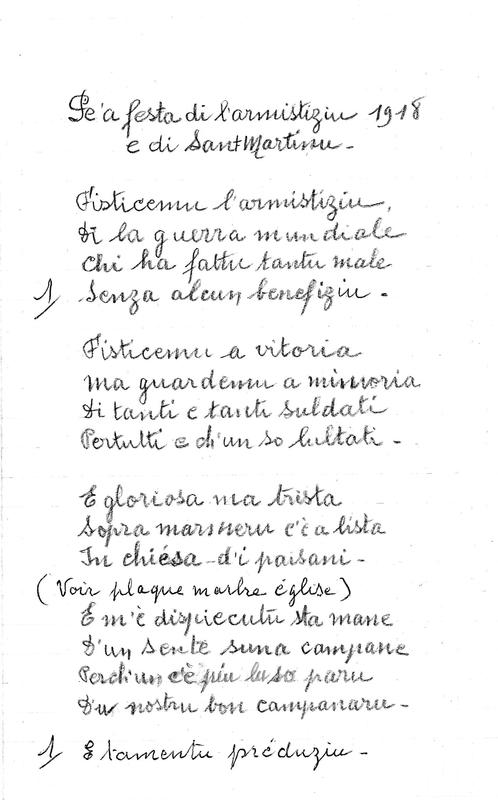 Pe'a festa di l'armistiziu 1918
e di Sant Martinu -
Fisticemu l'armistiziu,
Di la guerra mundiale
Chi ha fattu tantu male
1/ Senza alcun benefiziu -
Fisticemu a vitoria
Ma guardemu a mimoria
Di tanti e tanti suldati
Pertutti e ch'un so luttati -
E gloriosa ma trista
Sopra marmeru c'è a lista
In chiesa d'i paisani -
(Voir plaque marbre église)
E m'è dispiecutu sta mane
D'un sente suna campane
Perch'un c'è più lu so paru
D'u nostru bon campanaru -
1/ E tamentu préduziu -